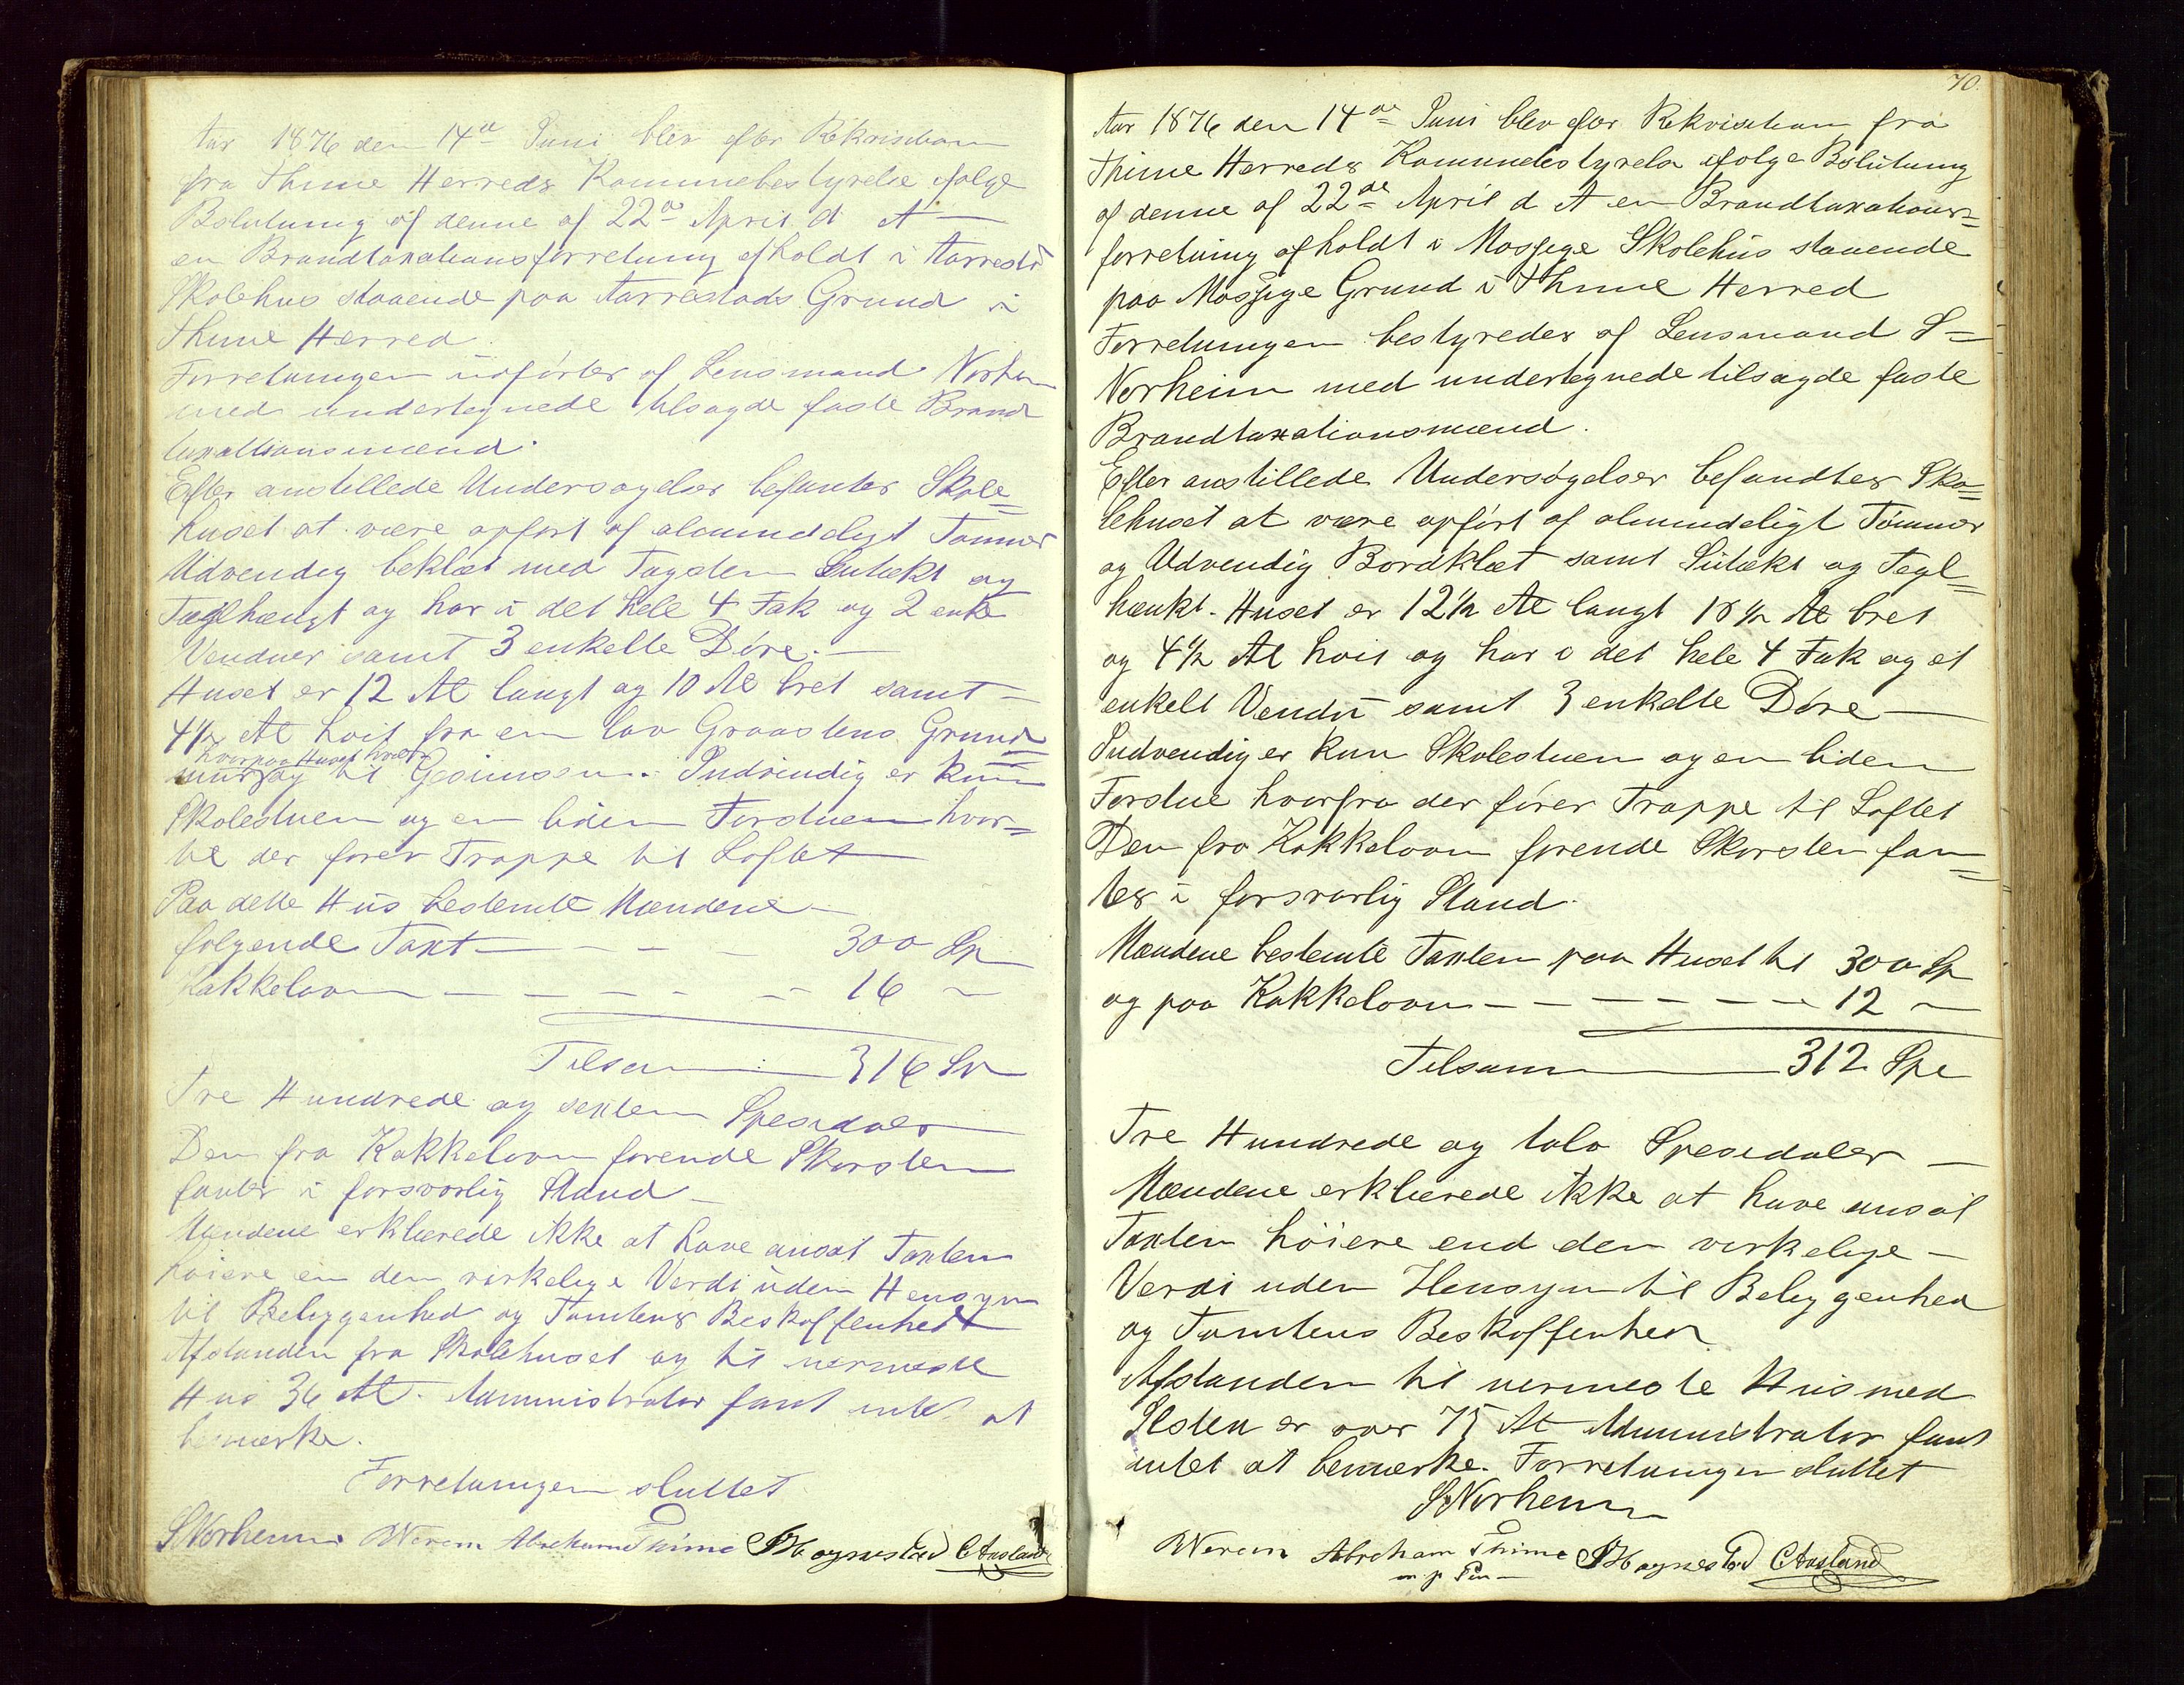 Aar 1876 den 14de Juni blev efter Rekvisition
fra Thime Herreds Kommunebestyrelse ifølge
Beslutning af denne af 22de April d A
en Brandtaxationsforretning afholdt i Aarrestd
Skolehus staaende paa Aarrestads Grund i
Thime Herred.
Forretningen udførtes af Lensmand Norheim
med undertegnede tilsagde faste Brand
taxationsmænd.
Efter anstillede Undersøgelser befantes Skole=
huset at være opført af almindeligt Tømmer
Udvendig beklæt med Tagsten Sutækt og
Teglhængt og har i det hele 4 Fak og 2 enke
Venduer samt 3 enkelte Døre.—
Huset er 12 Al langt og 10 Al bret samt=
4½ Al høit fra en lav Graastens Grund=
hvorpaa Huset hviler
mur og til Gesimsen. Indvendig er kun
Skolestuen og en liden Forstuen hvor=
til der fører Trappe til Loftet
Paa dette Hus bestemte Mændene —
følgende Taxt — — — — 300 Sp
Kakkelovn — — — — — 16 ~
Tilsam — 316 Sp
Tre Hundrede og sexten Spesidaler
Den fra Kakkelovn førende Skorsten
fantes i forsvarlig Stand —
Mændene erklærede ikke at have ansat Taxten
høiere en den virkelige Verdi uden Hensyn
til Beliggenhed og Tomtens Beskaffenhedt
Afstanden fra Skolehuset og til nærmeste
Hus 36 Al. Administrator fant intet at
bemærke.
Forretningen sluttet
SNorheim Werem Abraham Thime SHognestad CAasland
70.
Aar 1876 den 14de Juni blev efter Rekvisition fra
Thime Herreds Komunebestyrelse ifølge Beslutning
af denne af 22de April d A en Brandtaxations=
forretning afholdt i Mossige Skolehus staaende
paa Mossige Grund i Thime Herred
Forretningen bestyredes af Lensmand S=
Norheim med undertegnede tilsagde faste
Brandtaxationsmænd.
Efter anstillede Undersøgelser befandtes Sko=
lehuset at være opført af almindeligt Tømmer
og Udvendig Bordklæt samt Sutækt og Tegl=
hænkt. Huset er 12½ Al langt 10½ Al bret
og 4½ Al høit og har i det hele 4 Fak og et
enkelt Vendu samt 3 enkelte Døre —
Indvendig er kun Skolestuen og en liden
Forstue hvorfra der fører Trappe til Loftet
Den fra Kakkelovn førende Skorsten fan=
tes i forsvarlig Stand.
Mændene bestemte Taxten paa Huset til 300 Sp
og paa Kakkelovn — — — — — — — 12 ~
Tilsam — 312 Spe
Tre Hundrede og tolv Spesidaler —
Mændene erklærede ikke at have ansat
Taxten høiere end den virkelige —
Verdi uden Hensyn til Beliggenhed
og Tomtens Beskaffenhed
Afstanden til nærmeste Hus med
Ilsten er over 75 Al Administrator fant
intet at bemærke. Forretningen sluttet
SNorheim
Werem Abraham Thime SHognestad CAasland
m p Pen